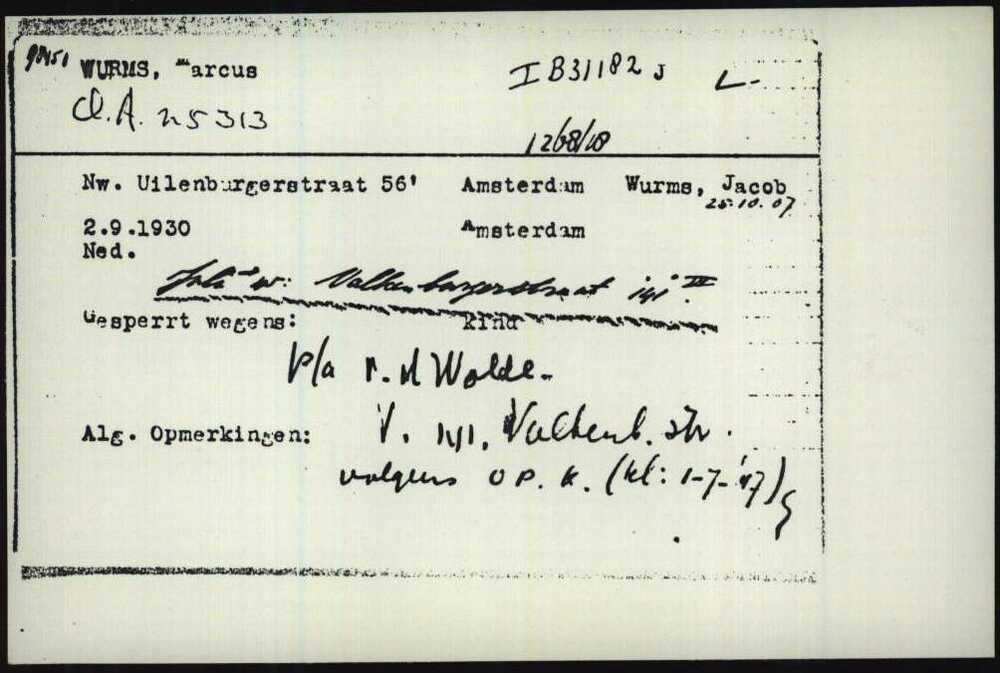 WURMS, Marcus I B31182 J L.
Cl.A. 25313
Nw. Uilenburgerstraat 56' Amsterdam Wurms, Jacob
25.10.07
2.9.1930 Amsterdam
Ned.
w: Valkenburgerstraat 191 III
Gesperrt wegens: kind
p/a r. d Wolde -
Alg. Opmerkingen: V. 191, Valkenb. str.
volgens O P. K. (kl: 1-7-'47)